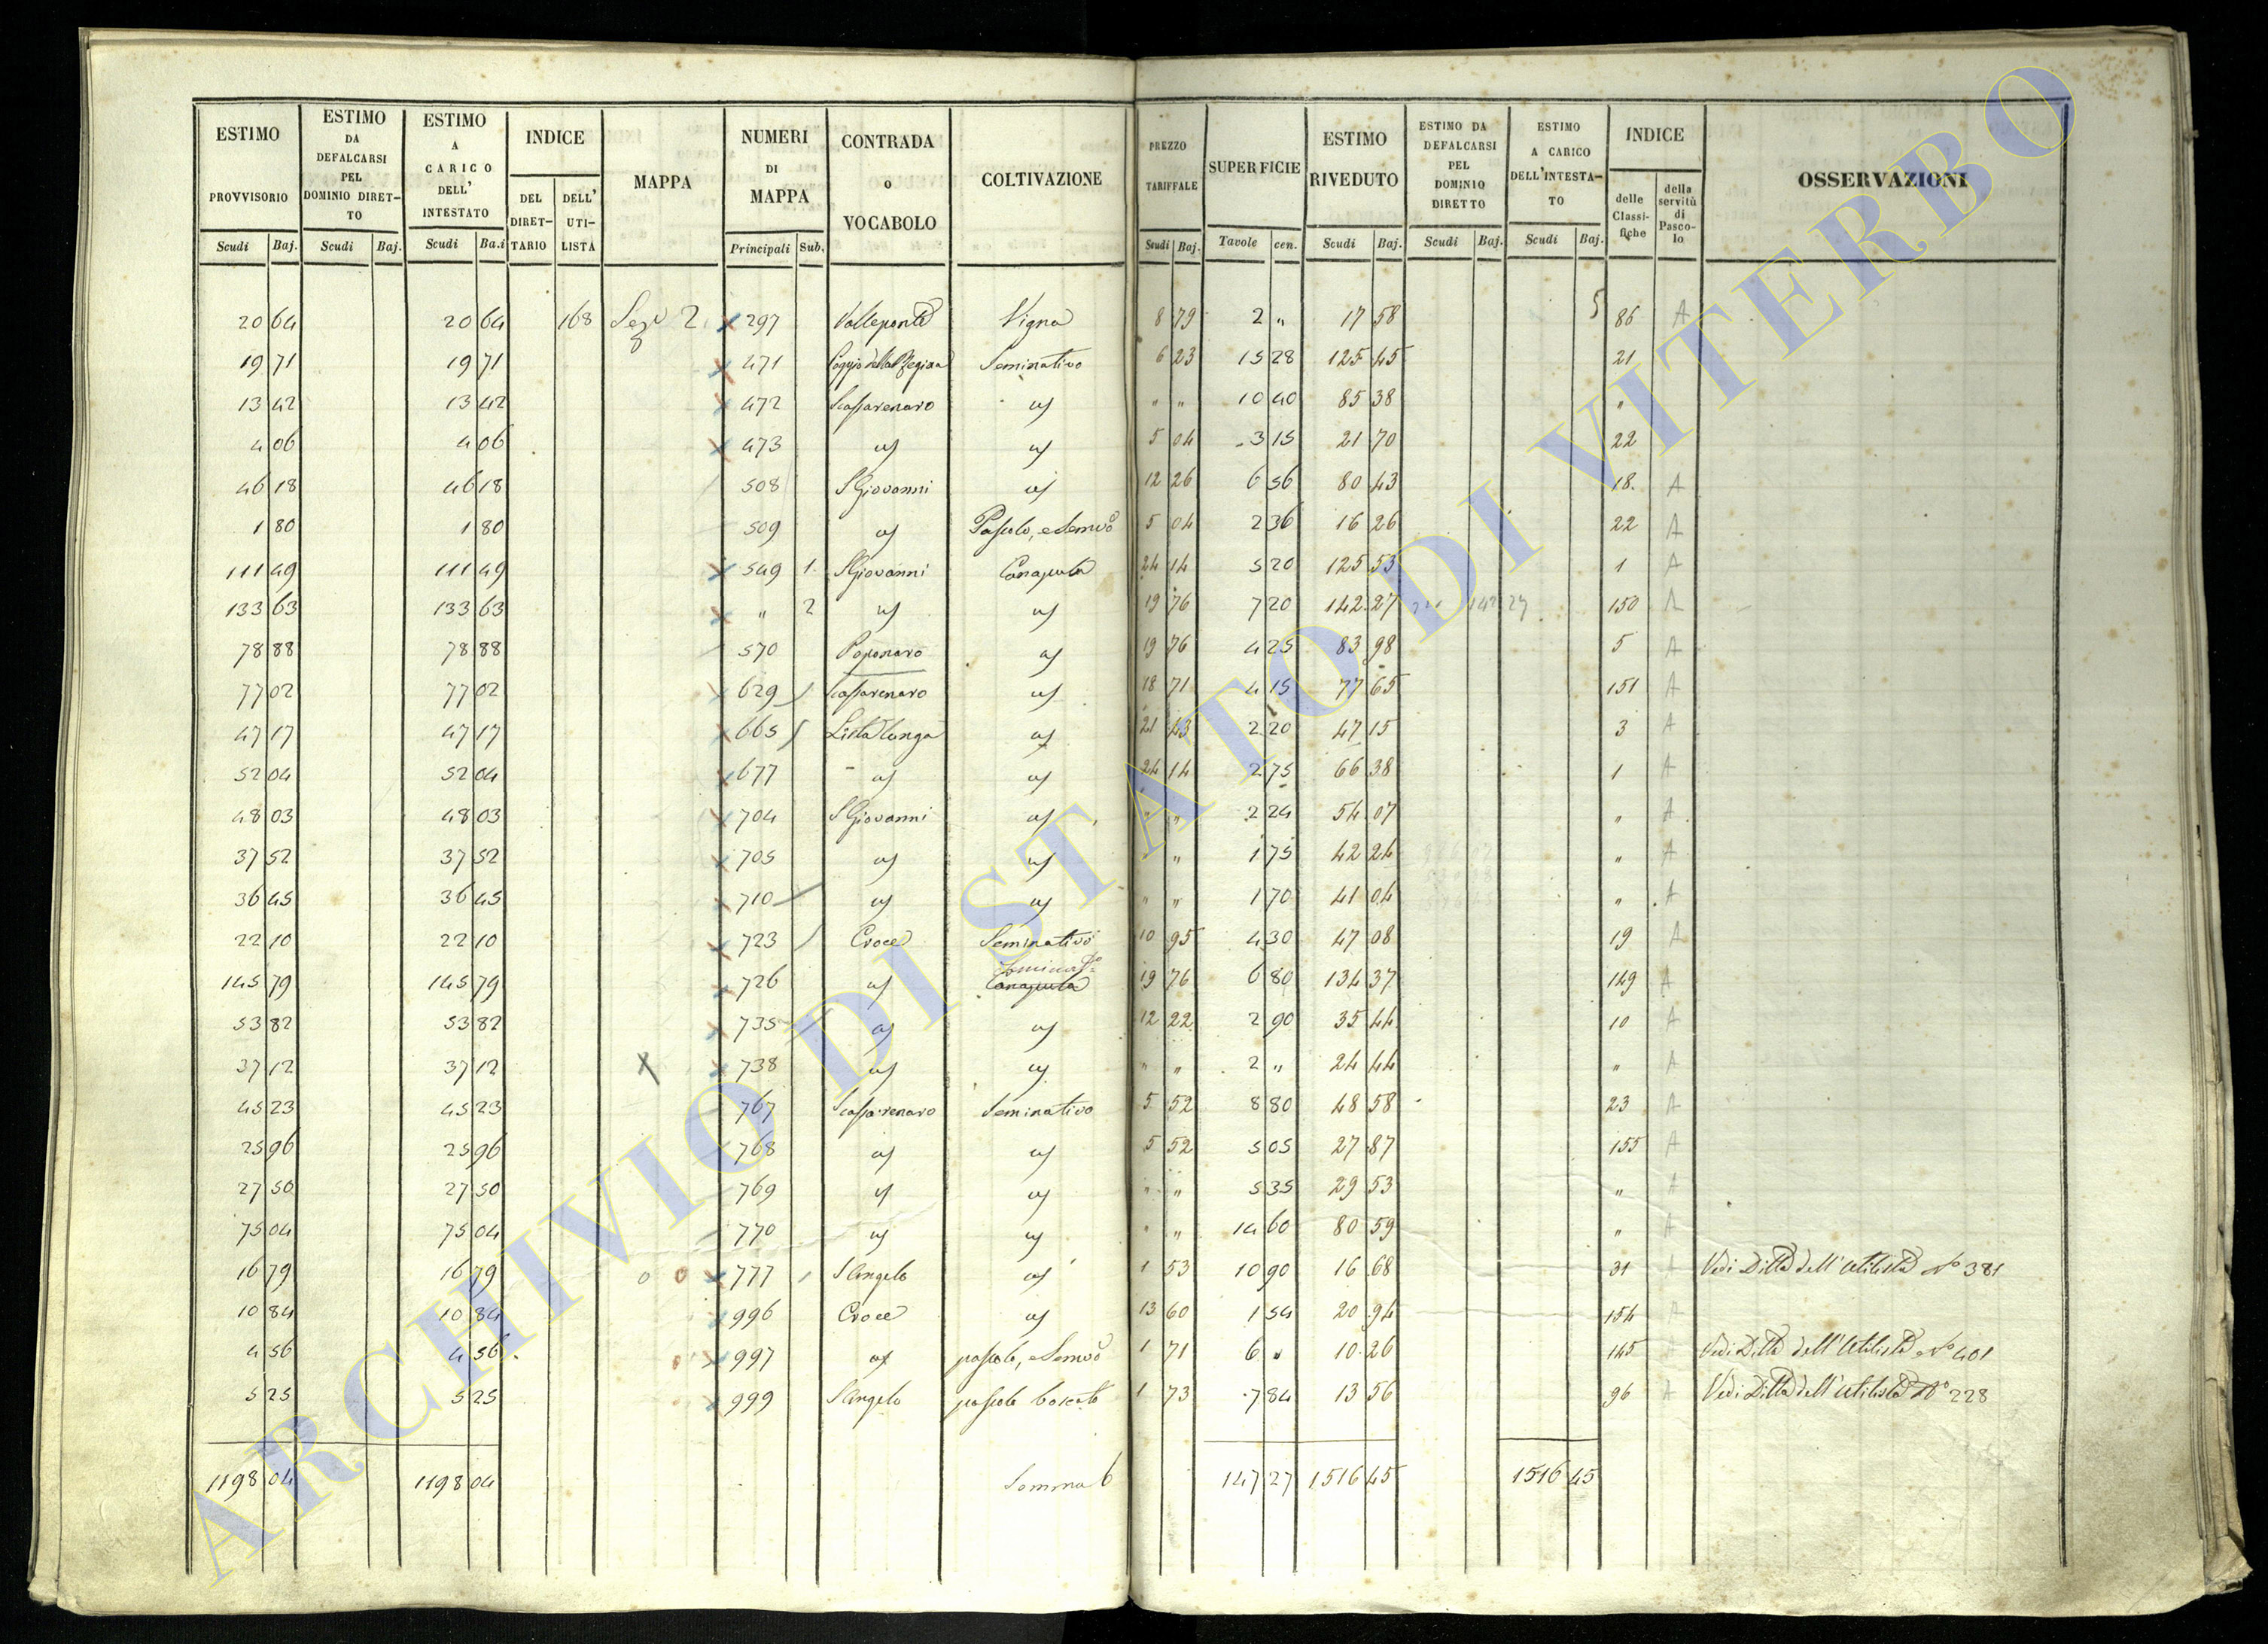 ESTIMO PROVVISORIO | ESTIMO DA DEFALCARSI PEL DOMINIO DIRETTO | ESTIMO A CARICO DELL' INTESTATO | INDICE | MAPPA | NUMERI DI MAPPA | CONTRADA o VOCABOLO | COLTIVAZIONE | PREZZO TARIFFALE | SUPERFICIE | ESTIMO RIVEDUTO | ESTIMO DA DEFALCARSI PEL DOMINIO DIRETTO | ESTIMO A CARICO DELL'INTESTATO | INDICE | OSSERVAZIONI
DEL DIRETTARIO | DELL' UTILISTA | delle Classifiche | della servitù di Pascolo
Scudi Baj. | Scudi Baj. | Scudi Ba.i | Principali Sub. | Scudi Baj. | Tavole cen. | Scudi Baj. | Scudi Baj. | Scudi Baj.
20 64 20 64 168 2 297 Valleponte Vigna 8 79 2 " 17 58 5 86 A
19 71 19 71 471 Poggio della Regina Seminativo 6 23 15 28 125 45 21
13 42 13 42 472 Scassarenaro " " 10 40 85 38 "
4 06 4 06 473 5 04 3 15 21 70 22
46 18 46 18 508 S Giovanni 12 26 6 56 80 43 18 A
1 80 1 80 509 5 04 2 36 16 26 22 A
111 49 111 49 549 1 S Giovanni Canaputa 24 14 5 20 125 53 1 A
133 63 133 63 " 2 19 76 7 20 142 27 150 A
78 88 78 88 570 Poponaro 19 76 4 25 83 98 5 A
77 02 77 02 629 Scassarenaro 18 71 4 15 77 65 151 A
47 17 47 17 665 Lista longa 21 43 2 20 47 15 3 A
52 04 52 04 677 24 14 2 75 66 38 1 A
48 03 48 03 704 S Giovanni " " 2 24 54 07 " A
37 52 37 52 705 " " 1 75 42 24 " A
36 45 36 45 710 " " 1 70 41 04 " A
22 10 22 10 723 Croce Seminativo 10 95 4 30 47 08 19 A
145 79 145 79 726 Canaputa 19 76 6 80 134 37 149 A
53 82 53 82 735 12 22 2 90 35 44 10 A
37 12 37 12 738 " " 2 " 24 44 " A
45 23 45 23 767 Scassarenaro Seminativo 5 52 8 80 48 58 23 A
25 96 25 96 768 5 52 5 05 27 87 155 A
27 50 27 50 769 " " 5 35 29 53 " A
75 04 75 04 770 " " 14 60 80 59 " A
16 79 16 79 777 S Angelo 1 53 10 90 16 68 31 A Vedi Ditta dell'utilista No 381
10 84 10 84 996 Croce 13 60 1 54 20 94 154 A
4 56 4 56 997 1 71 6 " 10 26 145 A Vedi Ditta dell'Utilista No 401
5 25 5 25 999 S Angelo pascolo boscato 1 73 7 84 13 56 96 A Vedi Ditta dell'utilista No 228
1198 04 1198 04 Somma 147 27 1516 45 1516 45
ARCHIVIO DI STATO DI VITERBO